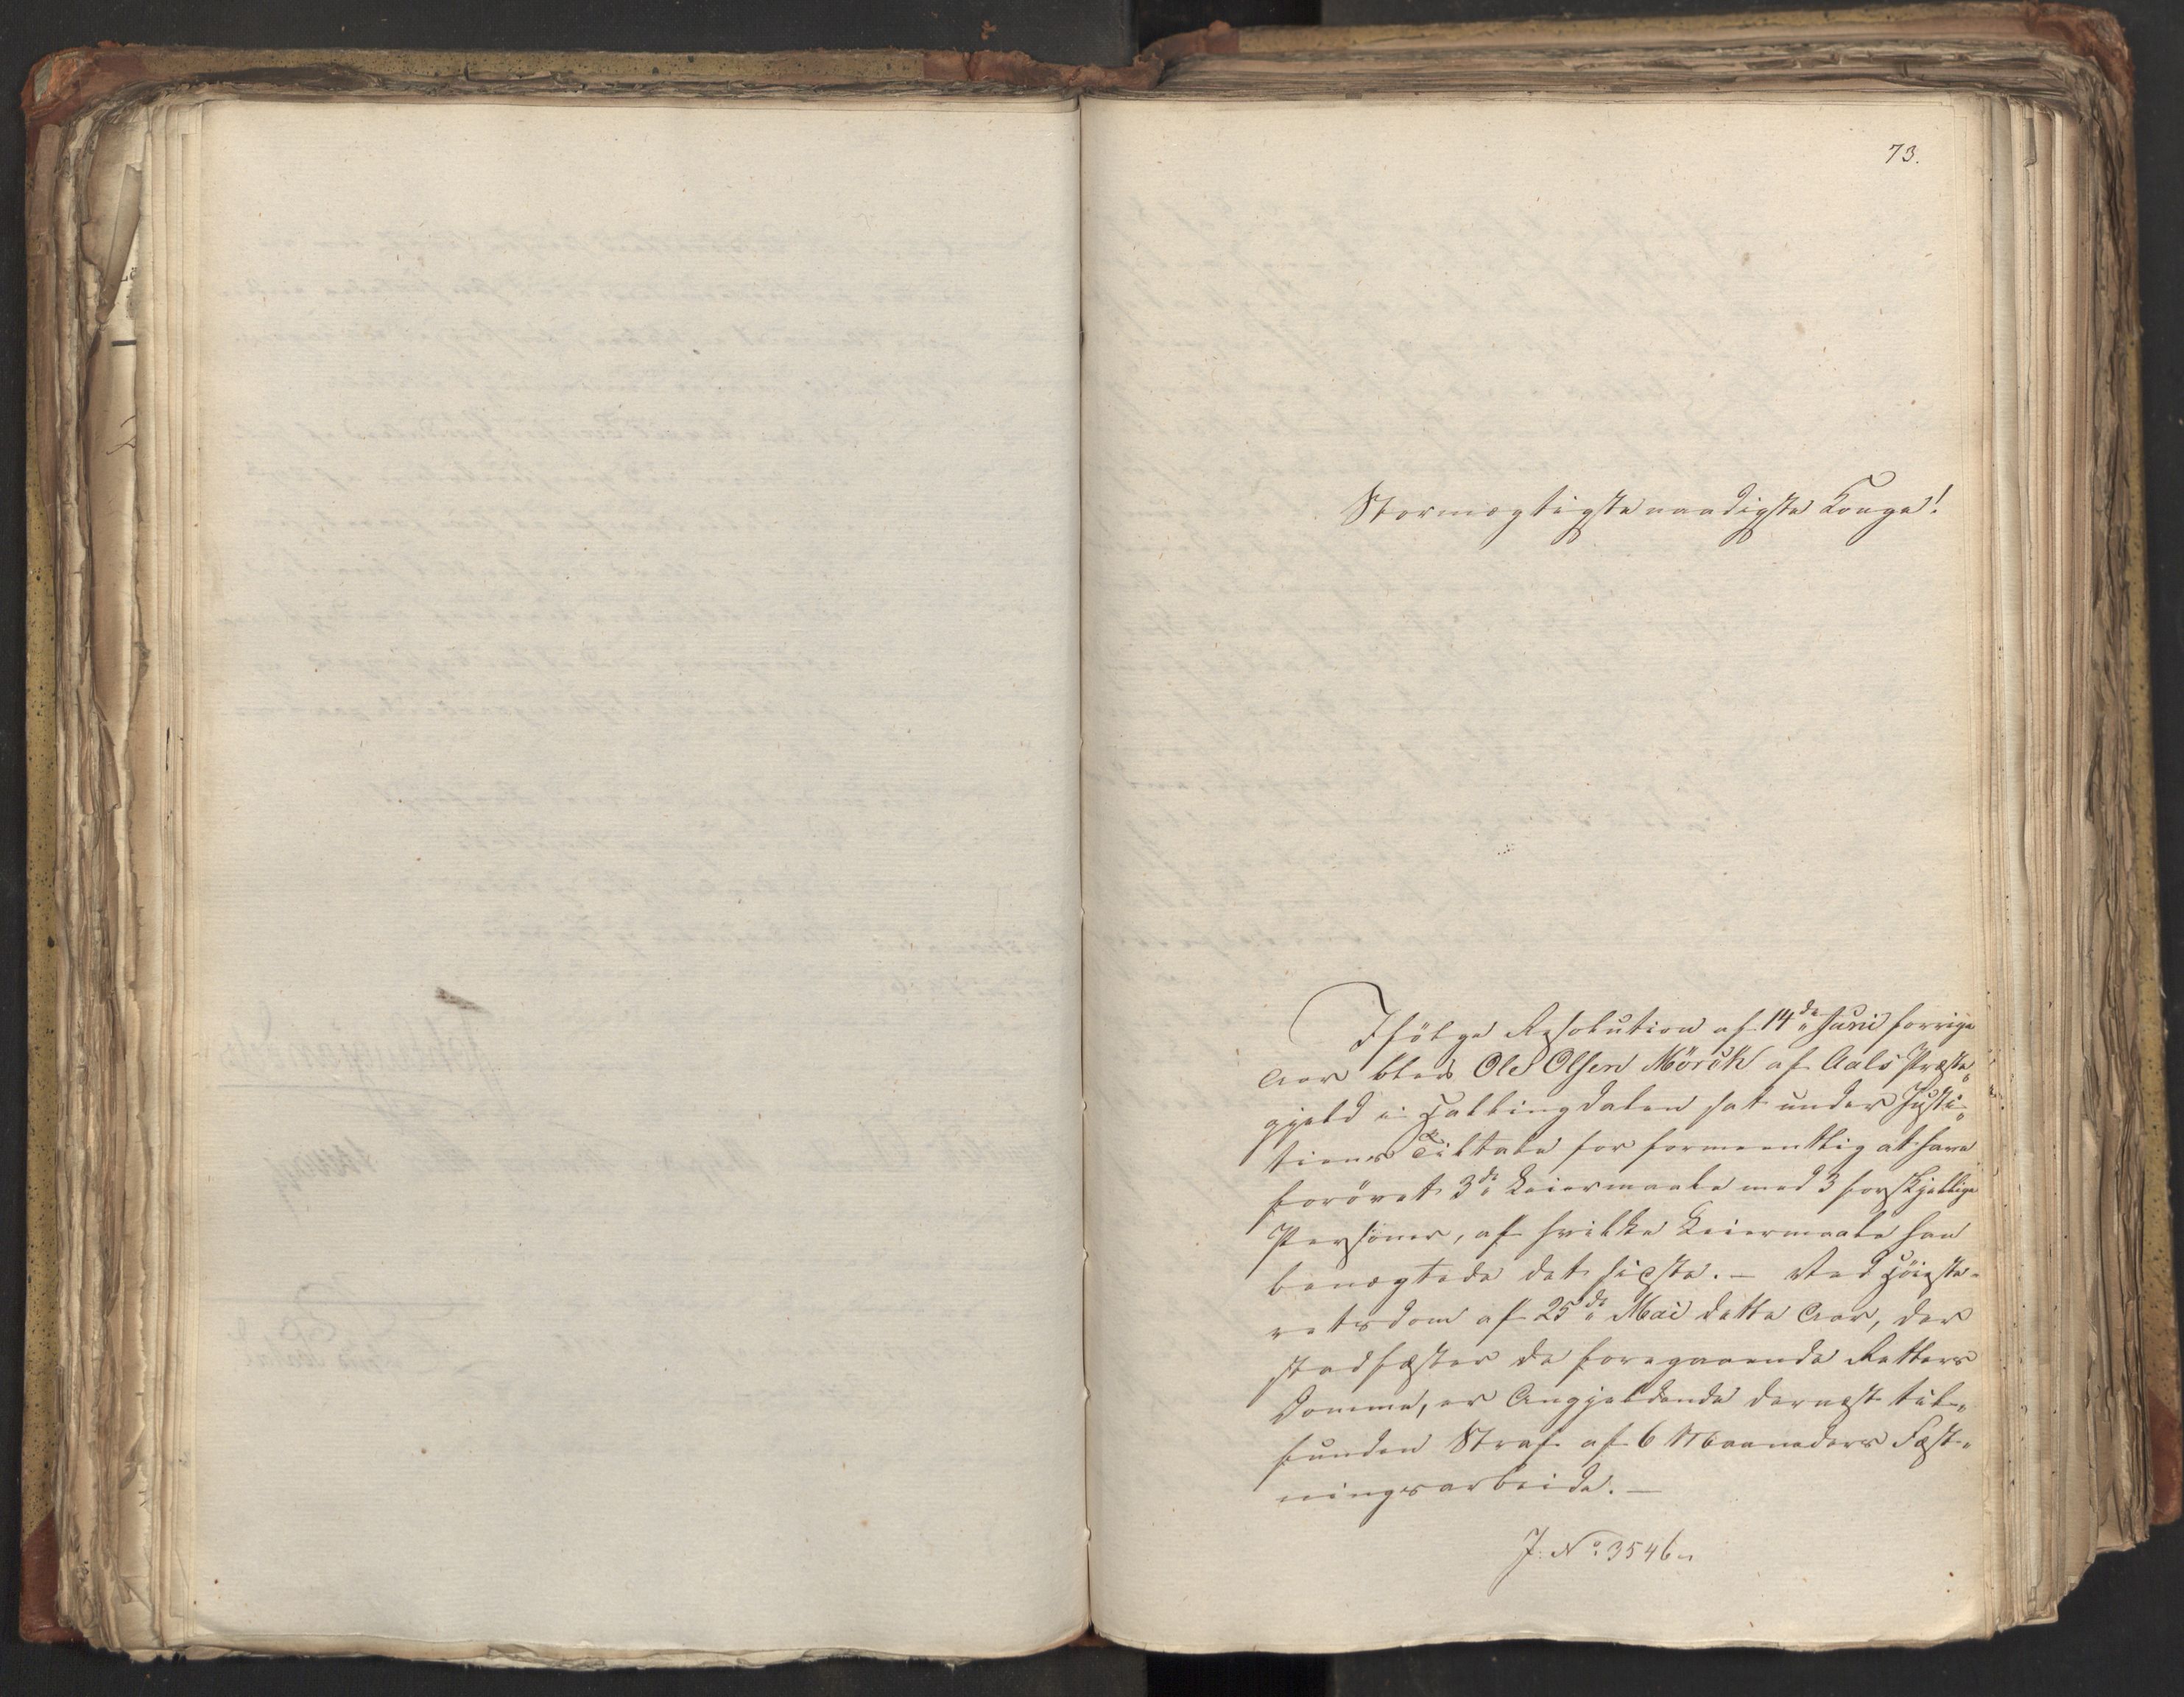 73.
Stormægtigste naadigste Konge!
Ifölge Resolution af 14de Juni forrige
Aar blev Ole Olsen Mörck af Aals Præste„
gjeld i Hallingdalen sat under Justi„
tiens Tiltale for formeentlig at have
forövet 3de Leiermaale med 3 forskjellige
Personer, af hvilke Leiermaale han
benægtede det sidste. – Ved Höieste„
retsdom af 25de Mai dette Aar, der
stadfæster de foregaaende Retters
Domme, er Angjeldende dernæst til„
funden Straf af 6 Maaneders Fæst„
ningsarbeide. –
J: No 3546